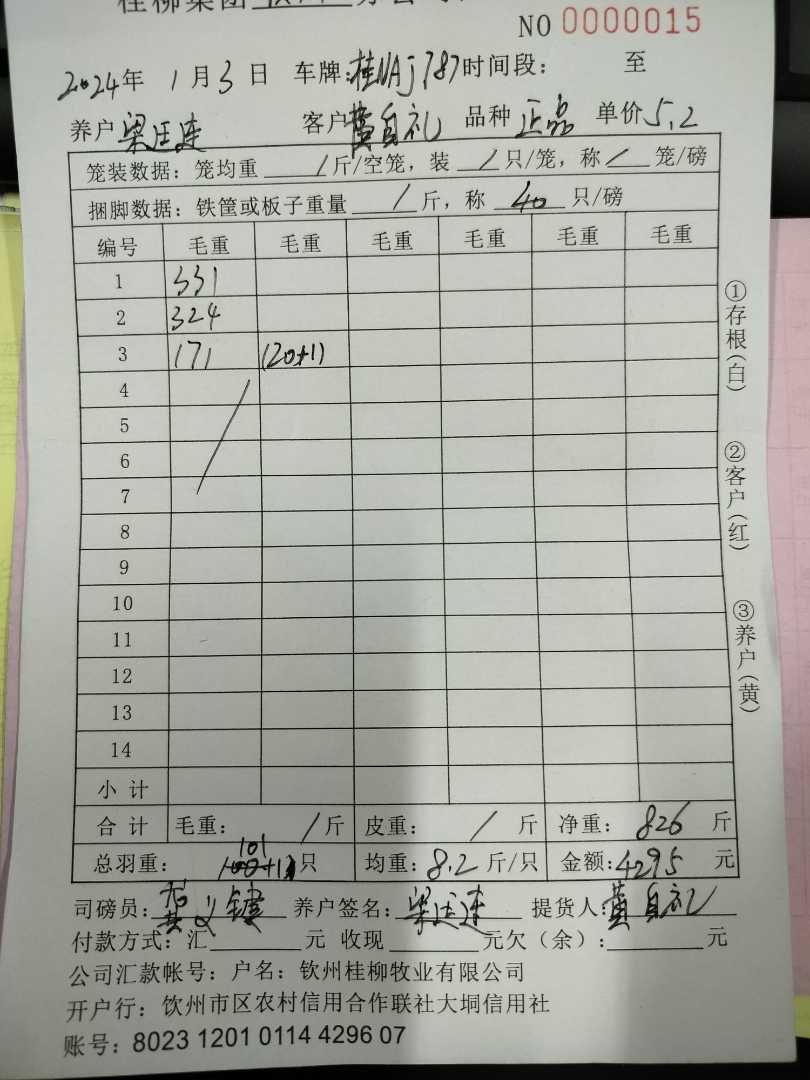 桂柳集团
NO 0000015
2024年 1月3日 车牌:桂NAJ787 时间段: 至
养户 梁廷连 客户 黄自礼 品种 正品 单价 5.2
笼装数据: 笼均重 / 斤/空笼, 装 / 只/笼, 称 / 笼/磅
捆脚数据: 铁筐或板子重量 / 斤, 称 40 只/磅
编号 毛重 毛重 毛重 毛重 毛重 毛重
1 331
2 324
3 171 (20+1)
4
5
6
7
8
9
10
11
12
13
14
小 计
合 计 毛重: / 斤 皮重: / 斤 净重: 826 斤
总羽重: 101 只 均重: 8.2 斤/只 金额: 4295 元
司磅员: 养户签名: 梁廷连 提货人: 黄自礼
付款方式: 汇 元 收现 元欠(余): 元
公司汇款帐号: 户名: 钦州桂柳牧业有限公司
开户行: 饮州市区农村信用合作联社大垌信用社
账号: 8023 1201 0114 4296 07
①存根(白)
②客户(红)
③养户(黄)